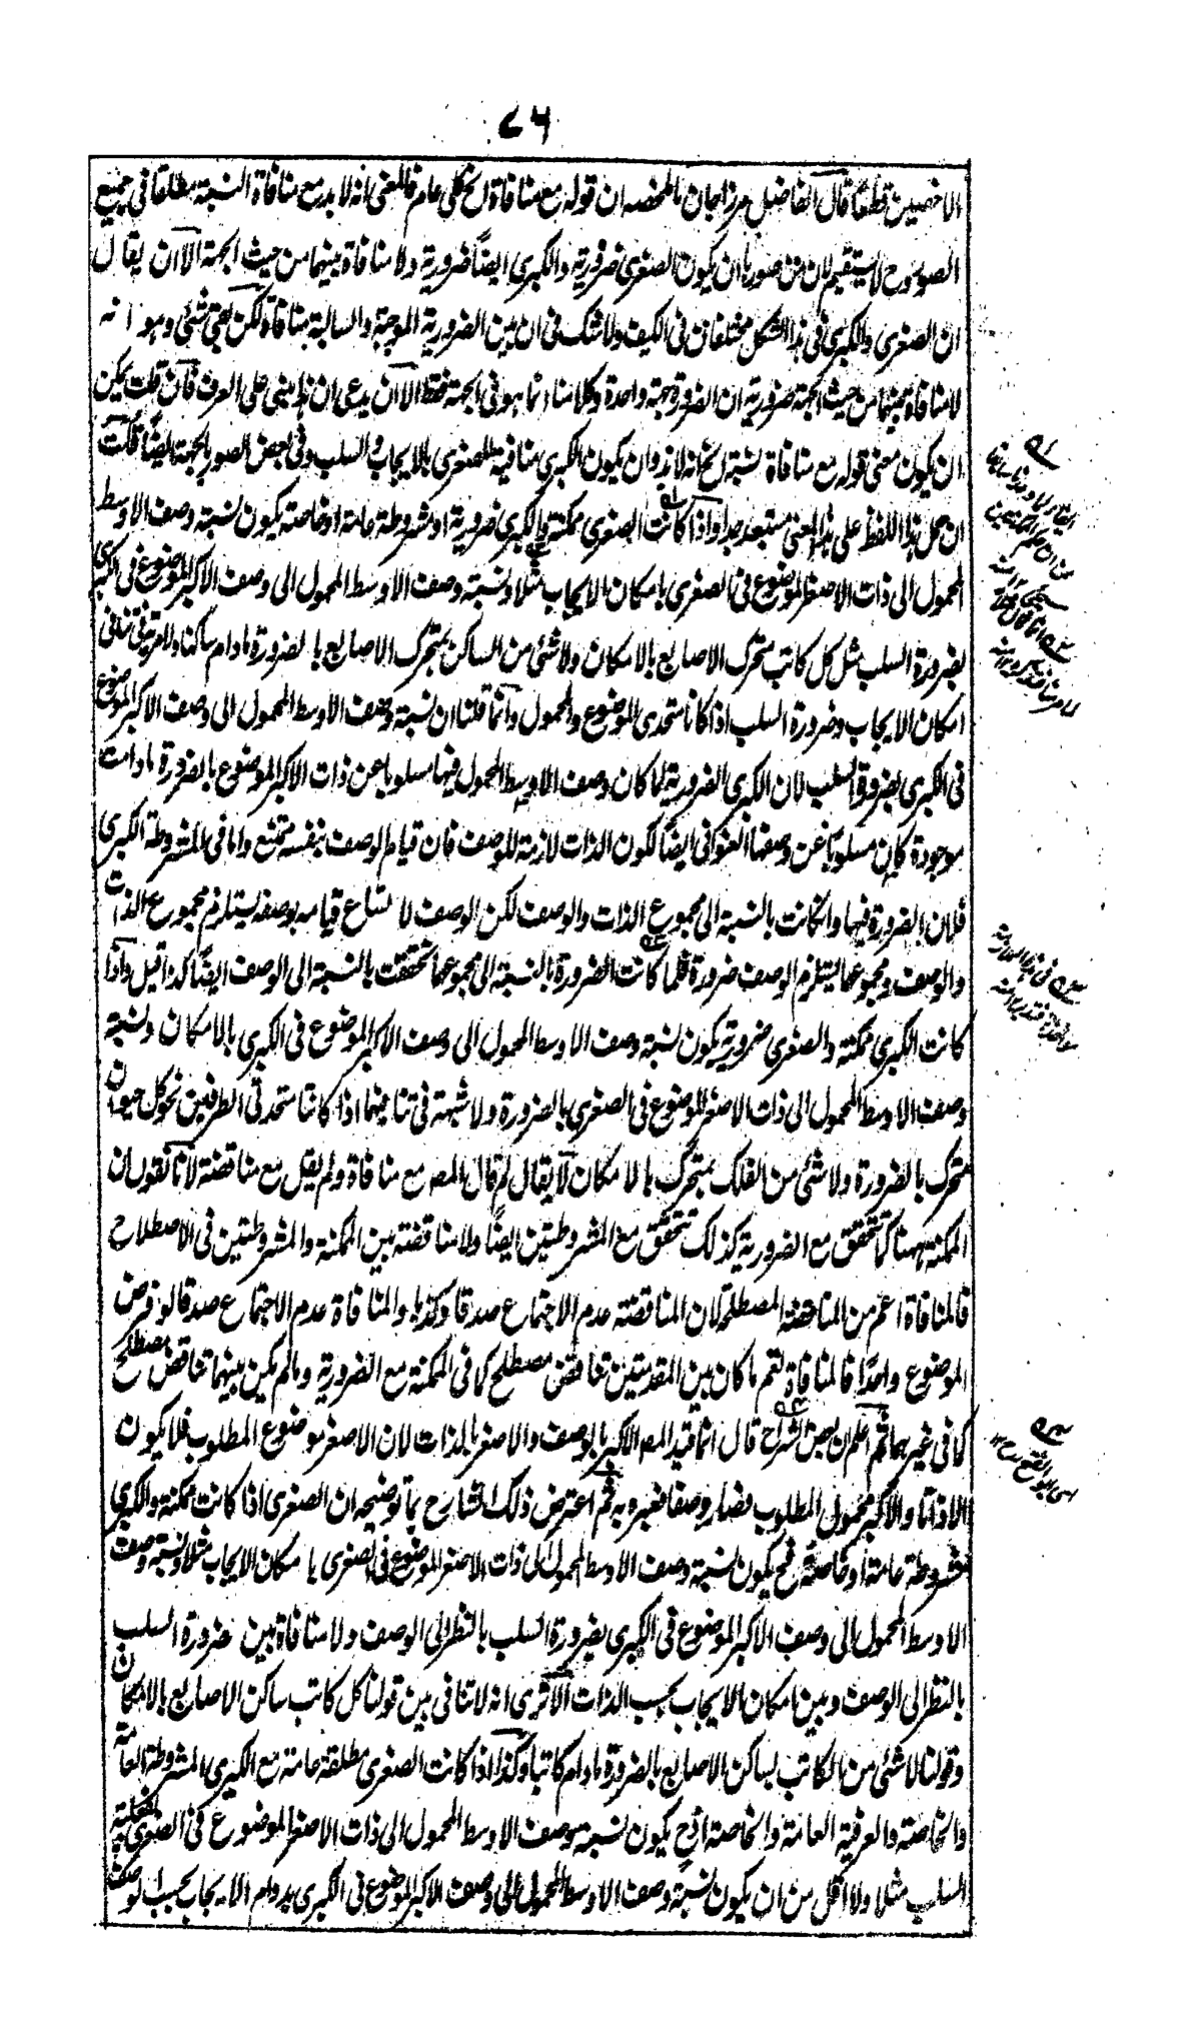 ۷۶
الاخصيين قطعًا قال الفاضل مرزاجان ما ملخصه ان قوله مع منافاة الخ كلى عام فالمعنى انه لا بد مع منافاة النسبة مطلقا فى جميع
الصور وح لا يستقيم لان من صورها ان يكون الصغرى ضرورية والكبرى ايضًا ضرورية ولا منافاة بينهما من حيث الجهة الا ان يقال
ان الصغرى والكبرى فى هذا الشكل مختلفان فى الكيف ولا شك فى ان بين الضرورية الموجبة والسالبة منافاة لكن بقى شئ وهو انه
لا منافاة بينهما من حيث الجهة ضرورية ان الضرورة جهة واحدة وكلامنا انما هو فى الجهة فقط الا ان يدعى ان هذا مبنى على العرف فان قلت يمكن
ان يكون معنى قوله مع منافاة نسبة الخ انه لا بد وان يكون الكبرى منافية للصغرى بالايجاب والسلب وفى بعض الصور بالجهة ايضًا قلت
ان حمل هذا اللفظ على هذا المعنى مستبعد جدا واذا كانت الصغرى ممكنة والكبرى ضرورية او مشروطة عامة او خاصة يكون نسبة وصف الاوسط
المحمول الى ذات الاصغر الموضوع فى الصغرى بامكان الايجاب مثلا ونسبة وصف الاوسط المحمول الى وصف الاكبر الموضوع فى الكبرى
بضرورة السلب مثل كل كاتب متحرك الاصابع بالامكان ولا شئ من الساكن بمتحرك الاصابع بالضرورة مادام ساكنا ولا مرية فى تنافى
امكان الايجاب وضرورة السلب اذا كانا متحدى الموضوع والمحمول وانما قلنا ان نسبة وصف الاوسط المحمول الى وصف الاكبر الموضوع
فى الكبرى بضرورة السلب لان الكبرى الضرورية لما كان وصف الاوسط المحمول فيها مسلوبا عن ذات الاكبر الموضوع بالضرورة مادامت
موجودة كان مسلوبًا عن وصفها العنوانى ايضًا لكون الذات لازمة للوصف فان قيام الوصف بنفسه ممتنع واما فى المشروطة الكبرى
فلان الضرورة فيها وان كانت بالنسبة الى مجموع الذات والوصف لكن الوصف لامتناع قيامه بوصفه يستلزم مجموع الذات
والوصف ومجموعها يستلزم الوصف ضرورة فلما كانت الضرورة بالنسبة الى مجموعها تحققت بالنسبة الى الوصف ايضًا كذا قيل واذا
كانت الكبرى ممكنة والصغرى ضرورية يكون نسبة وصف الاوسط المحمول الى وصف الاكبر الموضوع فى الكبرى بالامكان ونسبة
وصف الاوسط المحمول الى ذات الاصغر الموضوع فى الصغرى بالضرورة ولا شبهة فى تنافيهما اذا كانتا متحدتى الطرفين نحو كل حيوان
متحرك بالضرورة ولا شئ من الفلك بمتحرك بالامكان لا يقال لم قال المص مع منافاة ولم يقل مع مناقضة لانا نقول ان
الممكنة ههنا كما تتحقق مع الضرورية كذلك تتحقق مع المشروطتين ايضًا ولا مناقضة بين الممكنة والمشروطتين فى الاصطلاح
فالمنافاة اعم من المناقضة المصطلحة لان المناقضة عدم الاجتماع صدقا وكذبا والمنافاة عدم الاجتماع صدقا لو فرض
الموضوع واحدًا فالمنافاة تعم ما كان بين المقدمتين تناقض مصطلح كما فى الممكنة مع الضرورية وما لم يكن بينهما تناقض مصطلح
كما فى غيرهما ثم اعلم ان بعض الشراح قال انما قيد المص الاكبر بالوصف والاصغر بالذات لان الاصغر موضوع المطلوب فلا يكون
الا ذاتا والاكبر محمول المطلوب فصار وصفا فعبر به ثم اعترض ذلك الشارح بما توضيحه ان الصغرى اذا كانت ممكنة والكبرى
مشروطة عامة او خاصة فح يكون نسبة وصف الاوسط المحمول الى ذات الاصغر الموضوع فى الصغرى بامكان الايجاب مثلا ونسبة وصف
الاوسط المحمول الى وصف الاكبر الموضوع فى الكبرى بضرورة السلب بالنظر الى الوصف ولا منافاة بين ضرورة السلب
بالنظر الى الوصف وبين امكان الايجاب بحسب الذات الا ترى انه لا تنافى بين قولنا كل كاتب ساكن الاصابع بالامكان
وقولنا لا شئ من الكاتب بساكن الاصابع بالضرورة مادام كاتبا وكذا اذا كانت الصغرى مطلقة عامة مع الكبرى المشروطة العامة
والخاصة والعرفية العامة والخاصة اذ ح يكون نسبة وصف الاوسط المحمول الى ذات الاصغر الموضوع فى الصغرى بفعلية
السلب مثلا ولا اقل من ان يكون نسبة وصف الاوسط المحمول الى وصف الاكبر الموضوع فى الكبرى بدوام الايجاب بحسب الوصف